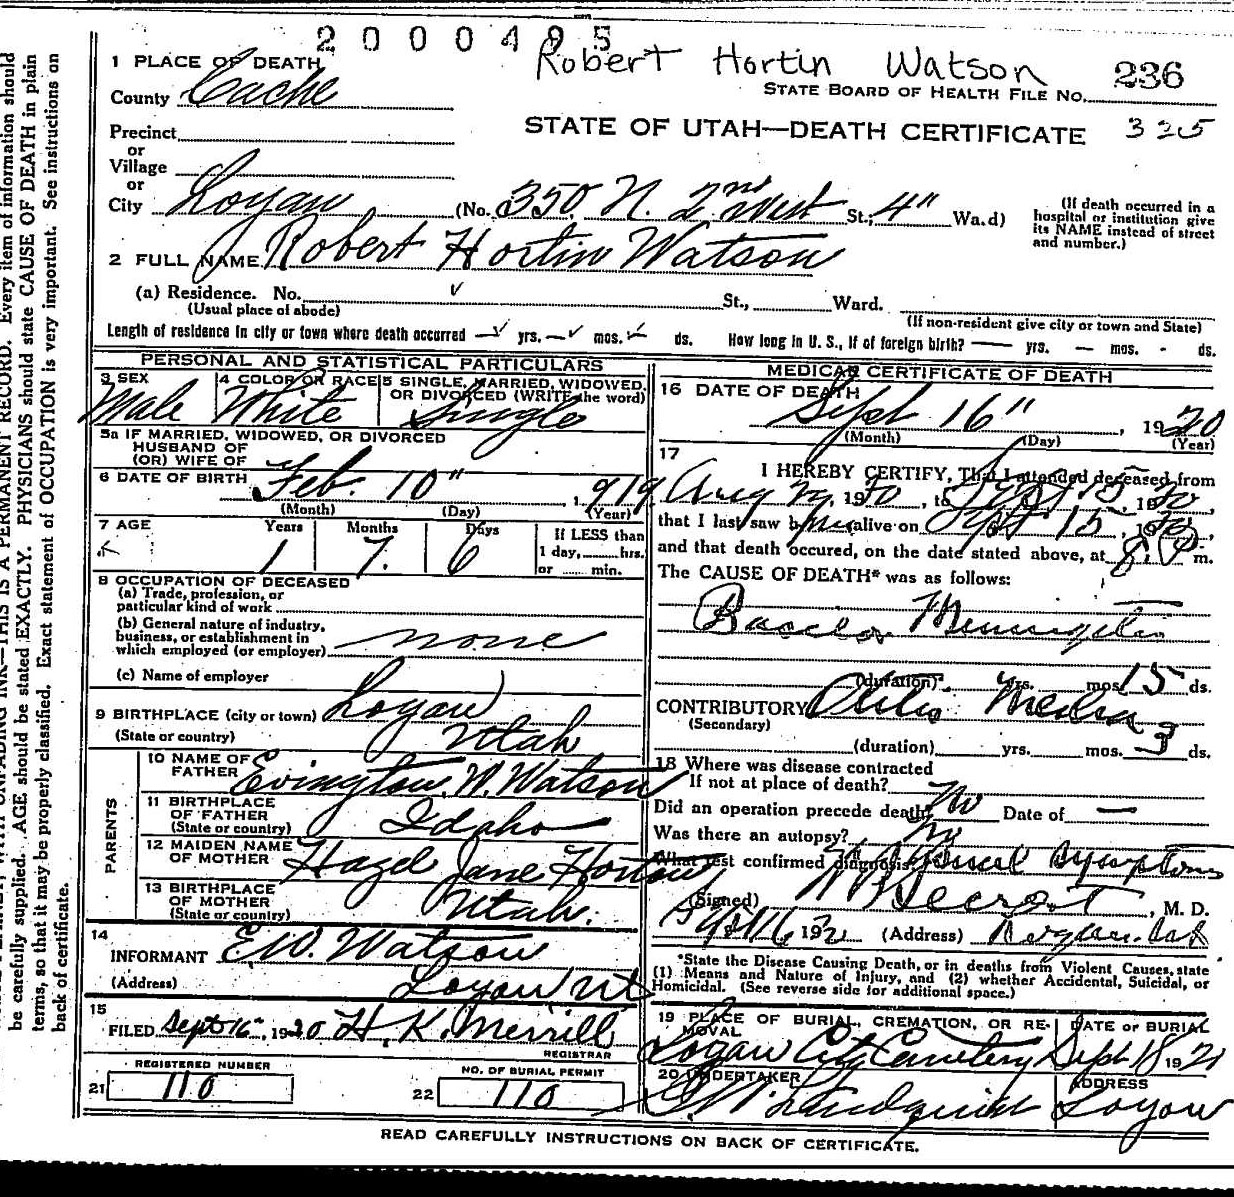 2000495
Robert Hortin Watson 236
STATE BOARD OF HEALTH FILE No.
1 PLACE OF DEATH
County Cache
STATE OF UTAH—DEATH CERTIFICATE 325
Precinct
or
Village
or
City Logan (No. 350 N. 2nd West St., 4" Wa.d)
(If death occurred in a hospital or institution give its NAME instead of street and number.)
2 FULL NAME Robert Hortin Watson
(a) Residence. No. St., Ward.
(Usual place of abode) (If non-resident give city or town and State)
Length of residence in city or town where death occurred yrs. mos. ds. How long in U. S., if of foreign birth? — yrs. — mos. - ds.
PERSONAL AND STATISTICAL PARTICULARS
3 SEX Male
4 COLOR OR RACE White
5 SINGLE, MARRIED, WIDOWED, OR DIVORCED (WRITE the word) Single
5a IF MARRIED, WIDOWED, OR DIVORCED
HUSBAND OF
(OR) WIFE OF
6 DATE OF BIRTH Feb. 10" 1919
(Month) (Day) (Year)
7 AGE Years Months Days If LESS than
1 7 6 1 day, hrs.
or min.
8 OCCUPATION OF DECEASED
(a) Trade, profession, or
particular kind of work
(b) General nature of industry,
business, or establishment in
which employed (or employer) none
(c) Name of employer
9 BIRTHPLACE (city or town) Logan
(State or country) Utah
PARENTS
10 NAME OF FATHER Evington W. Watson
11 BIRTHPLACE OF FATHER
(State or country) Idaho
12 MAIDEN NAME OF MOTHER Hazel Jane Horton
13 BIRTHPLACE OF MOTHER
(State or country) Utah.
14
INFORMANT E.W. Watson
(Address) Logan Ut
15
FILED Sept 16", 1920 H. K. Merrill
REGISTRAR
REGISTERED NUMBER
21 110
NO. OF BURIAL PERMIT
22 110
MEDICAL CERTIFICATE OF DEATH
16 DATE OF DEATH
Sept 16", 1920
(Month) (Day) (Year)
17
I HEREBY CERTIFY, That I attended deceased from
Aug 1920, to Sept 15, 1920,
that I last saw him alive on Sept 15, 1920,
and that death occured, on the date stated above, at 8 P m.
The CAUSE OF DEATH* was as follows:
Meningitis
(duration) yrs. mos. 15 ds.
CONTRIBUTORY Otitis Media
(Secondary)
(duration) yrs. mos. 3 ds.
18 Where was disease contracted
If not at place of death?
Did an operation precede death? No Date of —
Was there an autopsy? No
What test confirmed diagnosis? Symptoms
(Signed) , M. D.
Sept 16, 192 (Address)
*State the Disease Causing Death, or in deaths from Violent Causes, state
(1) Means and Nature of Injury, and (2) whether Accidental, Suicidal, or
Homicidal. (See reverse side for additional space.)
19 PLACE OF BURIAL, CREMATION, OR REMOVAL
Logan City Cemetery
DATE OF BURIAL
Sept 18 192
20 UNDERTAKER
Lundquist
ADDRESS
Logan
READ CAREFULLY INSTRUCTIONS ON BACK OF CERTIFICATE.
THIS IS A PERMANENT RECORD. Every item of information should
be carefully supplied. AGE should be stated EXACTLY. PHYSICIANS should state CAUSE OF DEATH in plain
terms, so that it may be properly classified. Exact statement of OCCUPATION is very important. See instructions on
back of certificate.